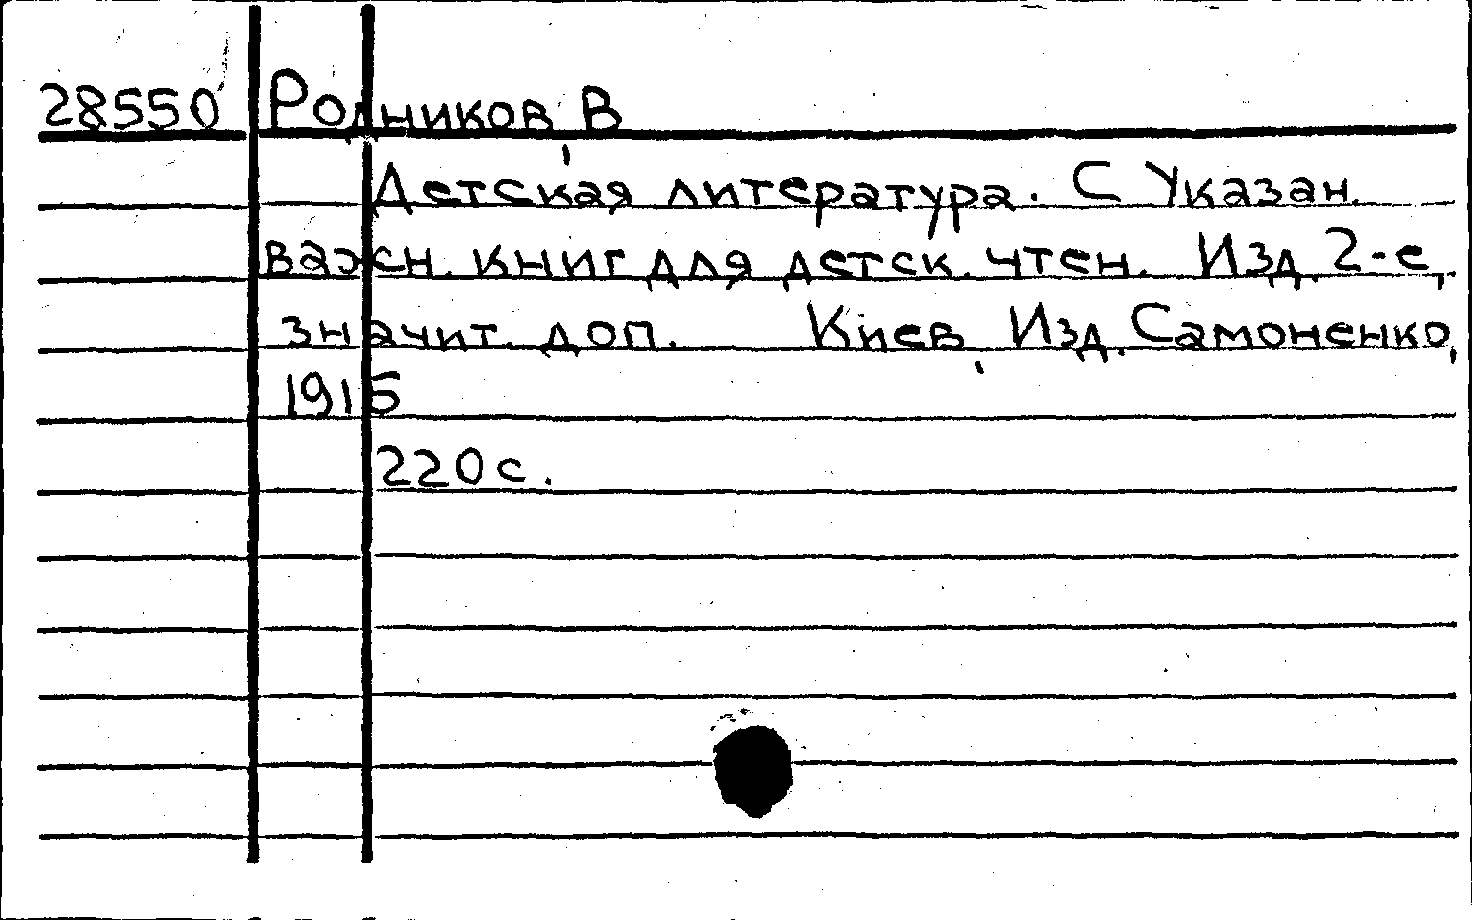 28550 Родников, В
Детская литература. С Указан.
важн. книг для детск. чтен. Изд. 2-е,
значит. доп. Киев, Изд. Самоненко,
1915
220с.